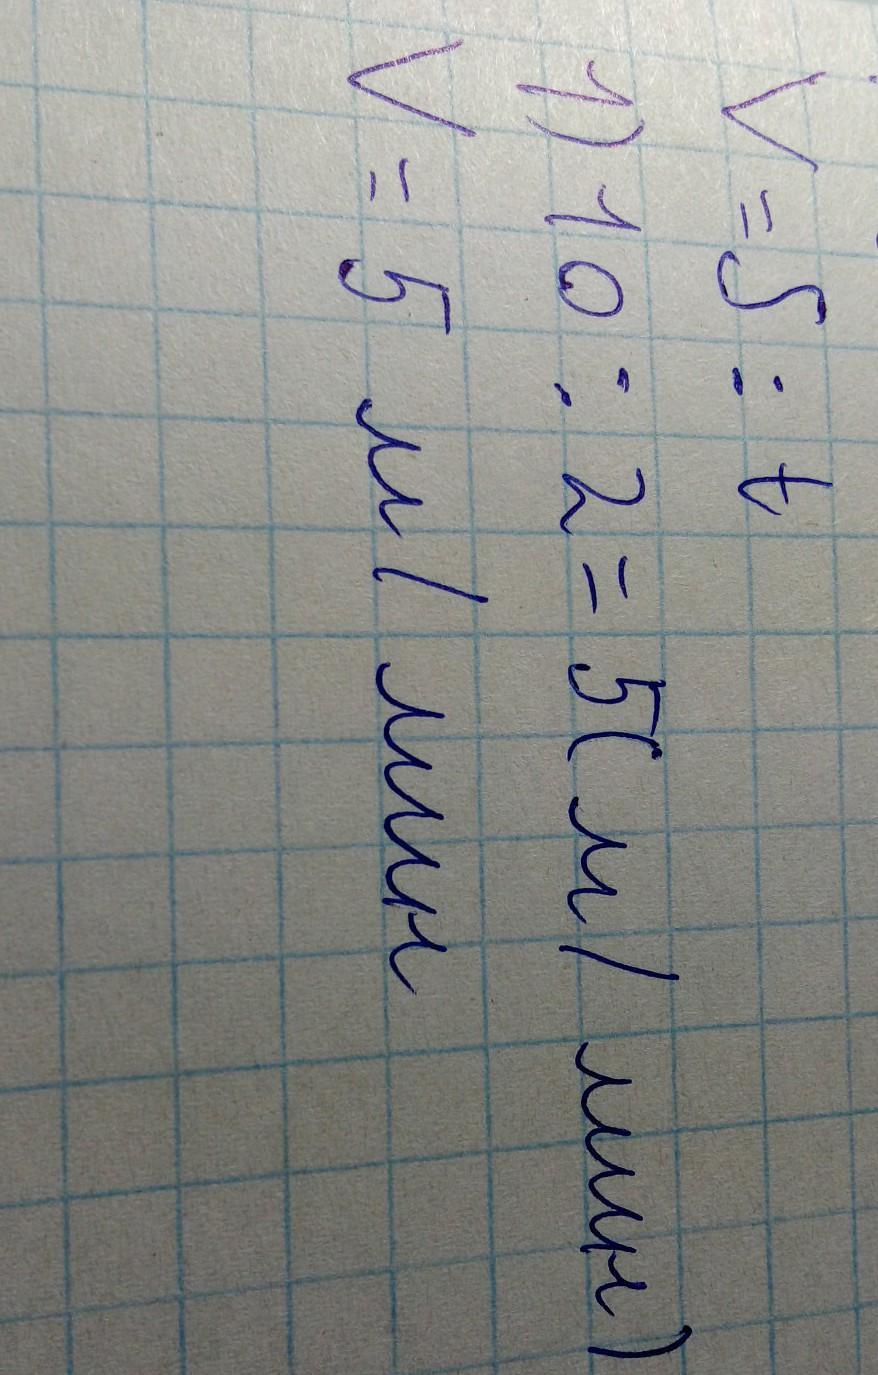 V = S : t
1) 10 : 2 = 5 (м/мин)
V = 5 м/мин